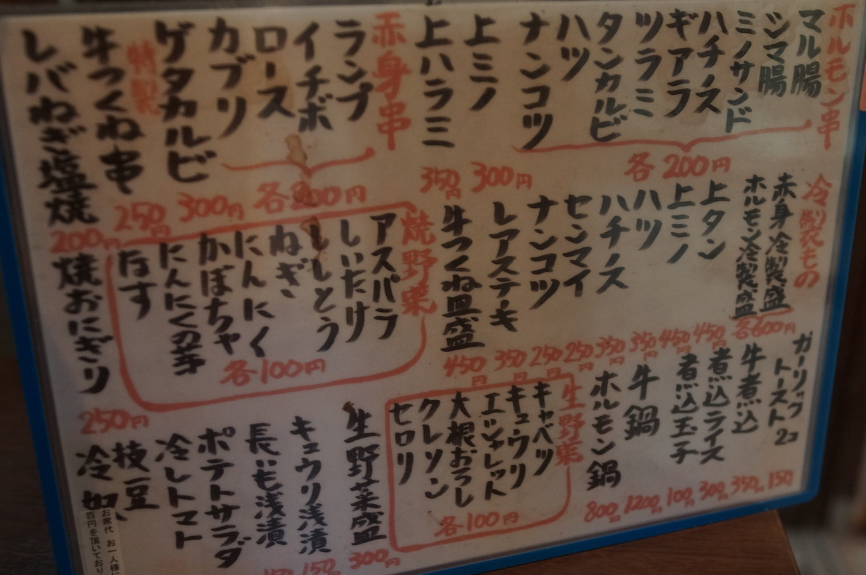 ホルモン串
マル腸
シマ腸
ミノサンド
ハチノス
ギアラ
ツラミ
タンカルビ
ハツ
ナンコツ
各200円
上ミノ
300円
上ハラミ
350円
赤身串
ランプ
イチボ
ロース
カブリ
ゲタカルビ
300円
特製
牛つくね串
250円
レバねぎ塩焼
200円
冷製もの
赤身冷製盛
ホルモン冷製盛
各600円
上タン
450円
上ミノ
450円
ハツ
350円
ハチノス
350円
センマイ
250円
ナンコツ
250円
レアステーキ
350円
牛つくね皿盛
450円
焼野菜
アスパラ
しいたけ
ししとう
ねぎ
にんにく
かぼちゃ
にんにくの芽
なす
各100円
焼おにぎり
250円
ガーリック
トースト2コ
150
牛煮込
350円
煮込ライス
300円
煮込玉子
100円
牛鍋
1200円
ホルモン鍋
800円
生野菜
キャベツ
キュウリ
エシャレット
大根おろし
クレソン
セロリ
各100円
生野菜盛
300円
キュウリ浅漬
150円
長いも浅漬
ポテトサラダ
冷しトマト
枝豆
お席代 お一人様に
百円を頂いており